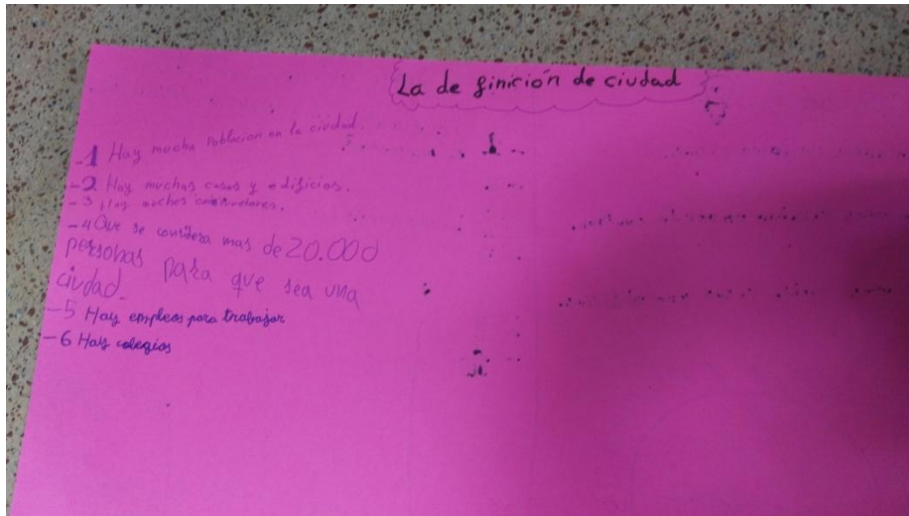 La de finición de ciudad
-1 Hay mucha Poblacion en la ciudad.
-2 Hay muchas casas y edificios.
-3 Hay muches
-4 Que se considera mas de 20.000
personas para que sea una
ciudad.
-5 Hay empleos para trabajar
-6 Hay colegios